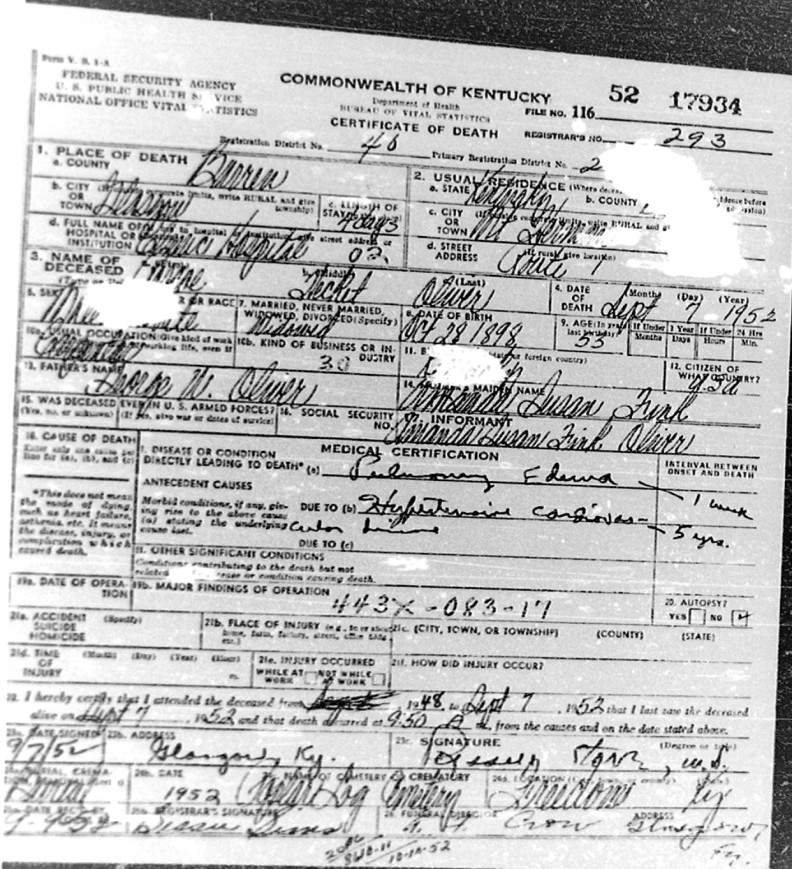 Form V. S. 1-A
FEDERAL SECURITY AGENCY
U. S. PUBLIC HEALTH VICE
NATIONAL OFFICE VITAL STATISTICS
COMMONWEALTH OF KENTUCKY
Department of Health
BUREAU OF VITAL STATISTICS
CERTIFICATE OF DEATH
52 17934
FILE NO. 116
REGISTRAR'S NO. 293
Registration District No. 46 Primary Registration District No. 2
1. PLACE OF DEATH
a. COUNTY Barren
b. CITY (If corporate limits, write RURAL and give township)
OR TOWN Glasgow
c. LENGTH OF STAY 4 days
d. FULL NAME OF HOSPITAL OR INSTITUTION Hospital 02
2. USUAL RESIDENCE (Where
a. STATE Kentucky b. COUNTY
c. CITY OR TOWN Mt Herman
d. STREET ADDRESS (If rural, give location) Route 1
3. NAME OF DECEASED b. (Middle) (Last) Oliver
4. DATE OF DEATH (Month) (Day) (Year) Sept 7 1952
5. SEX OR RACE
7. MARRIED, NEVER MARRIED, WIDOWED, DIVORCED (Specify) Widowed
8. DATE OF BIRTH Oct 28 1898
9. AGE (In years 53 If Under 1 Year If Under 24 Hrs
Months Days Hours Min.
10a. USUAL OCCUPATION (Give kind of work Carpenter
10b. KIND OF BUSINESS OR INDUSTRY 30
11. foreign country)
12. CITIZEN OF WHAT COUNTRY?
13. FATHER'S NAME George W. Oliver
14. MAIDEN NAME Amanda Susan Fink
15. WAS DECEASED EVER IN U. S. ARMED FORCES?
(Yes, no, or unknown) (If yes, give war or dates of service)
16. SOCIAL SECURITY NO.
INFORMANT Amanda Susan Fink Oliver
18. CAUSE OF DEATH
Enter only one cause per line for (a), (b), and (c)
MEDICAL CERTIFICATION
INTERVAL BETWEEN ONSET AND DEATH
I. DISEASE OR CONDITION DIRECTLY LEADING TO DEATH* (a) Pulmonary Edema 1 week
*This does not mean the mode of dying, such as heart failure, asthenia, etc. It means the disease, injury, or complication which caused death.
ANTECEDENT CAUSES
Morbid conditions, if any, giving rise to the above cause (a) stating the underlying cause last.
DUE TO (b) Hypertensive Cardiovas- 5 yrs.
DUE TO (c)
II. OTHER SIGNIFICANT CONDITIONS
Conditions contributing to the death but not related or condition causing death.
19a. DATE OF OPERATION
19b. MAJOR FINDINGS OF OPERATION
443X-083-17
20. AUTOPSY?
YES NO
21a. ACCIDENT SUICIDE HOMICIDE (Specify)
21b. PLACE OF INJURY (e.g., in or about home, farm, factory, street, office bldg., etc.)
21c. (CITY, TOWN, OR TOWNSHIP) (COUNTY) (STATE)
21d. TIME OF INJURY (Month) (Day) (Year) (Hour) m.
21e. INJURY OCCURRED
WHILE AT WORK NOT WHILE AT WORK
21f. HOW DID INJURY OCCUR?
22. I hereby certify that I attended the deceased from 1948, to Sept 7, 1952 that I last saw the deceased
alive on Sept 7, 1952 and that death occurred at 9:50 A m., from the causes and on the date stated above.
23a. DATE SIGNED 9/7/52
23b. ADDRESS Glasgow, Ky.
23c. SIGNATURE (Degree or title) M.D.
Burial
24b. DATE 1952
NAME OF CEMETERY OR CREMATORY Poplar Log Cemetery
24d. LOCATION Freedom Ky
9-9-52
25b. REGISTRAR'S SIGNATURE Bessie
26. FUNERAL DIRECTOR Crow
ADDRESS Glasgow, Ky.
10-10-52